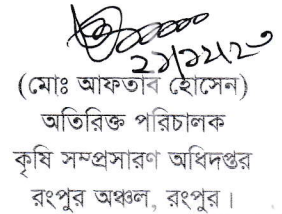 ২১/১২/২৩
(মোঃ আফতাব হোসেন)
অতিরিক্ত পরিচালক
কৃষি সম্প্রসারণ অধিদপ্তর
রংপুর অঞ্চল, রংপুর।